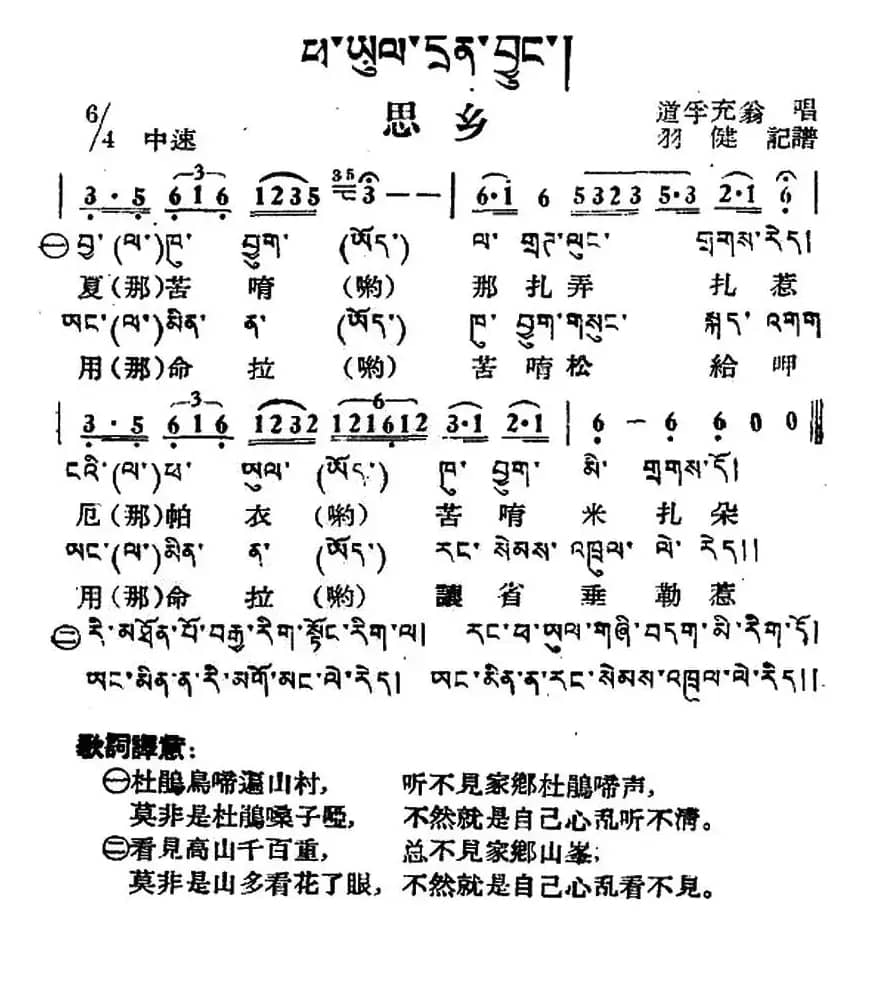 ཕ་ཡུལ་དྲན་བྱུང་།
思乡
6/4 中速
道孚充翁 唱
羽健 記譜
3·5 616 1235 35 3 — — | 6·1 6 5323 5·3 2·1 6 |
㊀བྱ་(ལ་)ཁུ་ བྱུག་ (ཡོད་) ལ་ གྲྭ་ལུང་ གྲགས་རེད།
夏(那)苦 唷 (喲) 那扎弄 扎惹
ཨང་(ལ་)མིན་ ན་ (ཡོད་) ཁུ་ བྱུག་གསུང་ སྐད་ འགག
用(那)命 拉 (喲) 苦唷松 給呷
3·5 616 1232 121612 3·1 2·1 | 6 — 6 6 0 0
ངའི་(ལ་)ཕ་ ཡུལ་ (ཡོད་) ཁུ་ བྱུག་ མི་ གྲགས་དོ།
厄(那)帕 衣 (喲) 苦 唷 米 扎 朵
ཨང་(ལ་)མིན་ ན་ (ཡོད་) རང་ སེམས་ འཁྲུལ་ ལེ་ རེད།།
用(那)命 拉 (喲) 讓 省 垂 勒 惹
㊁རི་མཐོན་པོ་བརྒྱ་རིག་སྟོང་རིག་ལ། རང་ཕ་ཡུལ་གཞི་བདག་མི་རིག་དོ།
ཨང་མིན་ན་རི་མགོ་མང་ལེ་རེད། ཨང་མིན་ན་རང་སེམས་འཁྲུལ་ལེ་རེད།།
歌詞譯意:
㊀杜鵑鳥啼遍山村, 听不見家鄉杜鵑啼声,
莫非是杜鵑嗓子啞, 不然就是自己心乱听不清。
㊁看見高山千百重, 总不見家鄉山峯;
莫非是山多看花了眼, 不然就是自己心乱看不見。